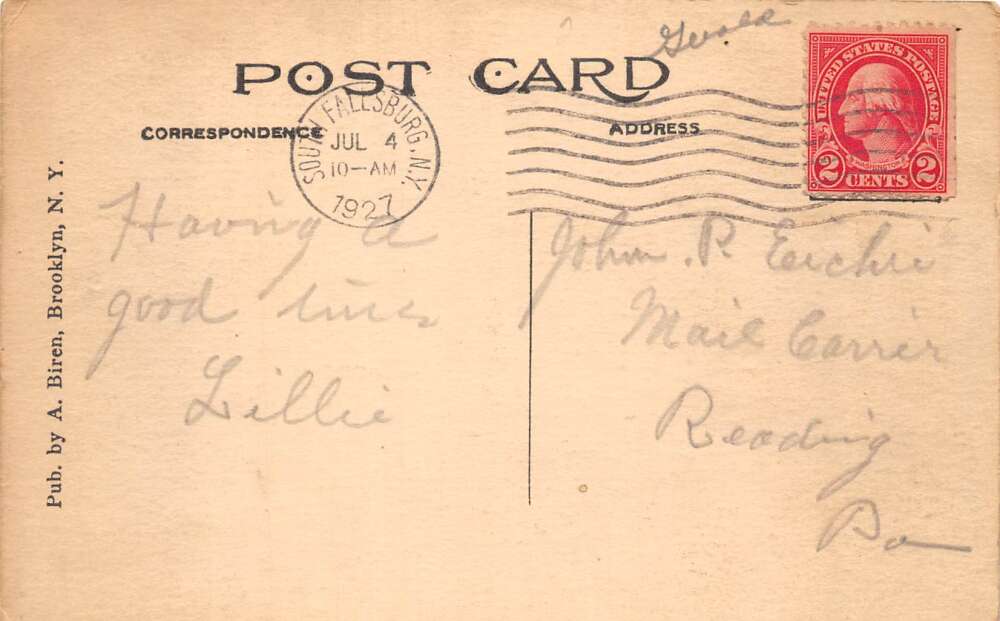 POST CARD
CORRESPONDENCE
ADDRESS
SOUTH FALLSBURG, N.Y.
JUL 4
10-AM
1927
UNITED STATES POSTAGE
WASHINGTON
2 CENTS 2
Having a
good time
Lillie
John. P.
Mail Carrier
Reading
Pa
Pub. by A. Biren, Brooklyn, N. Y.